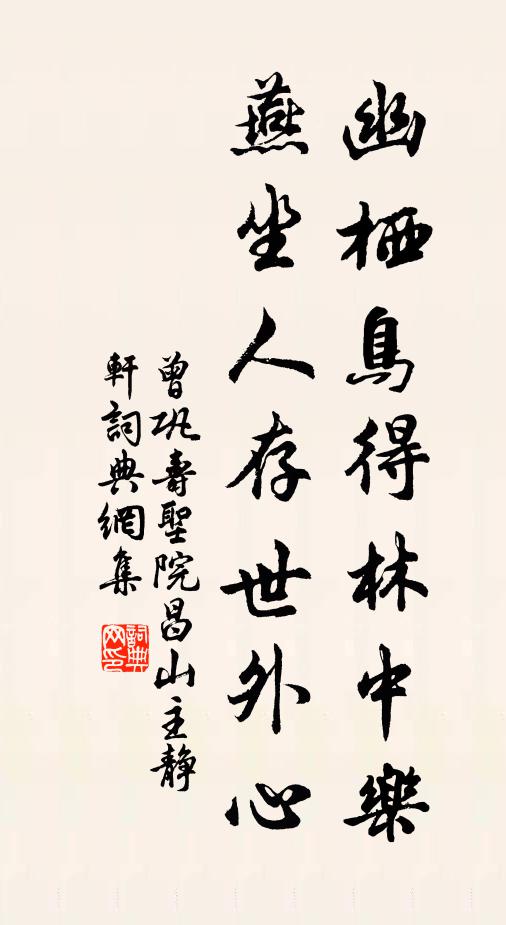 幽栖鳥得林中樂
燕坐人存世外心
曾巩壽聖院昌山主靜
軒詞典網集
詞典
网印